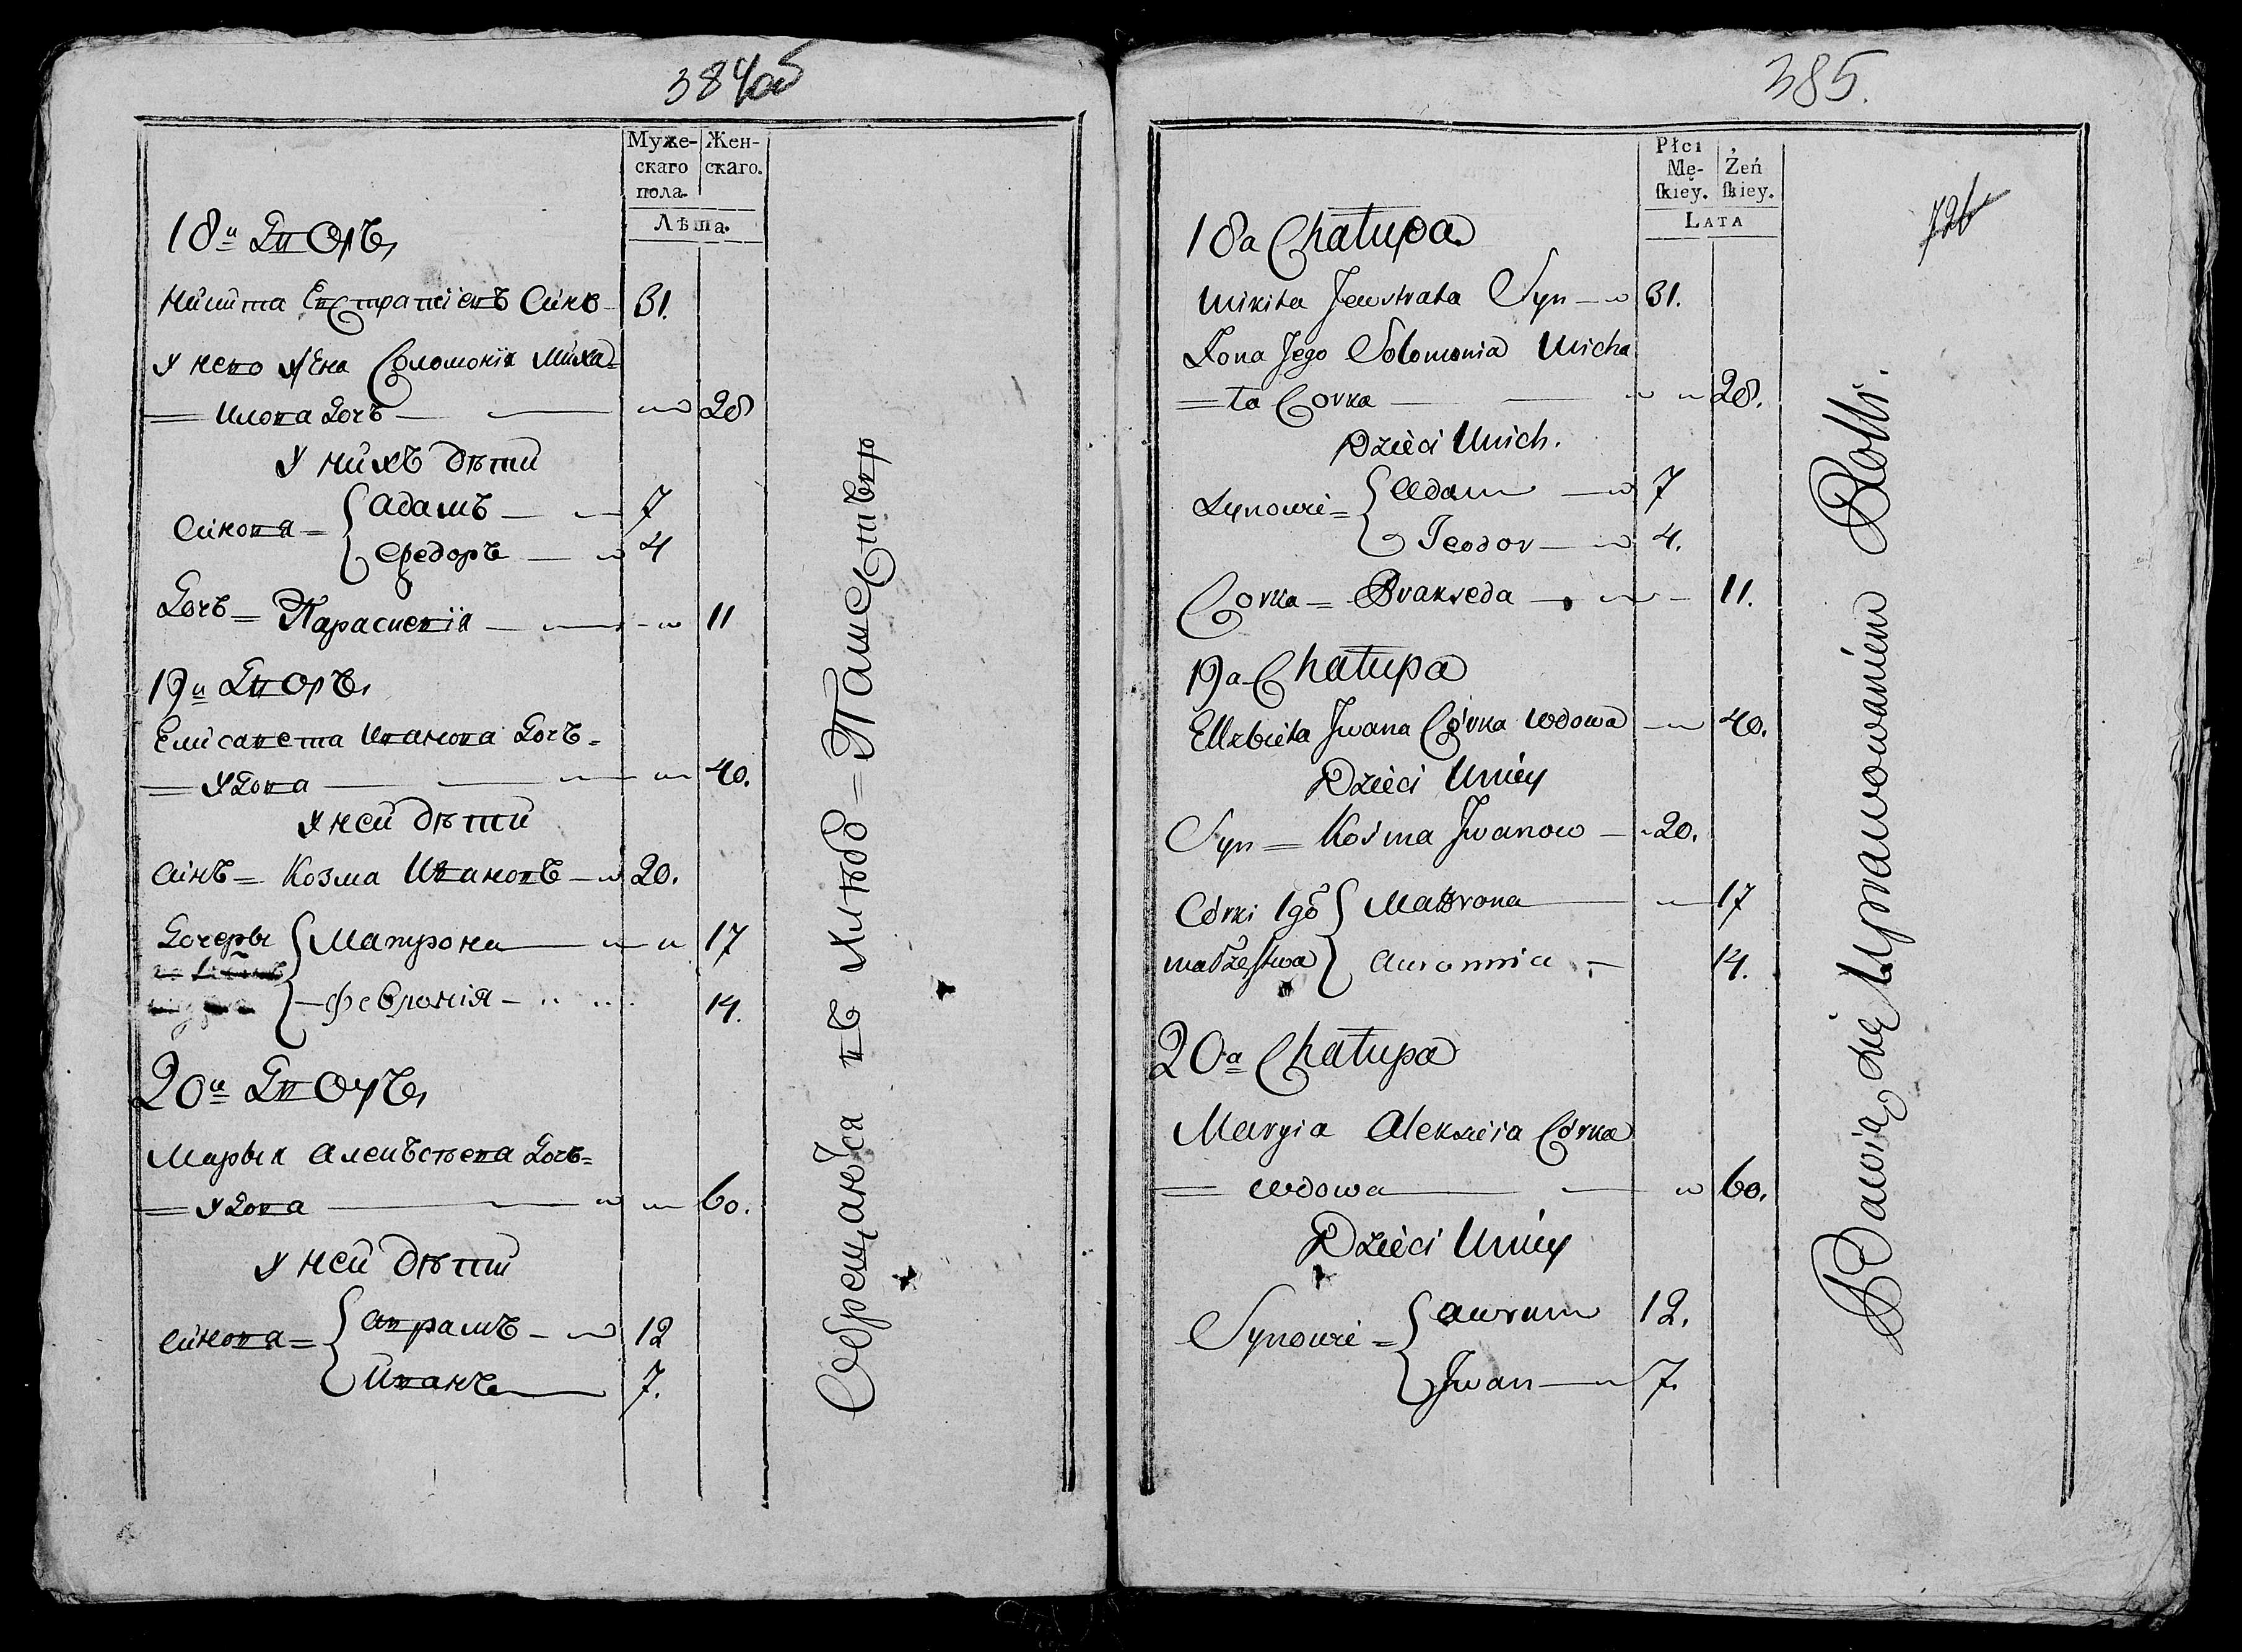 384об
Муже-
скаго
пола.
Жен-
скаго.
Лѣта.
18й Дворъ,
Никита Евстратіевъ Синъ 31.
У него жена Соломонія Миха=
= илова Дочъ 28
У нихъ дѣти
Синова = Адамъ 7
Федоръ 4
Дочъ = Парасневія 11
19й Дворъ,
Елисавета Иванова Дочъ =
= Удова 40.
У ней дѣти
Синъ = Козма Ивановъ 20.
Дочеры Матрона 17
Февронія 14.
20й Дворъ,
Марыя Алекъсѣева Дочъ =
= Удова 60.
У ней дѣти
Синова = Аврамъ 12
Иванъ 7.
Собрещаюѣса въ Хлѣбо = Пашествѣ
385.
726
Płci
Mę-
ſkiey.
Żeń
ſkiey.
LATA
18a Chałupa
Mikita Jewstrata Syn 31.
Zona Jego Solomonia Micha
= ła Corka 28.
Dzieci Unich.
Synowie = Adam 7
Teodor 4.
Corka = Prakseda 11.
19a Chałupa
Ellzbieta Jwana Córka Wdowa 40.
Dzieci Uniey
Syn = Kosma Jwanow 20.
Córki 1gō Matrona 17
małżeſtwa Auronnia 14.
20a Chałupa
Maryia Alekseia Córka
= Wdowa 60.
Dzieci Uniey
Synowie = Awram 12.
Jwan 7.
Bawią się Uprawowaniem Rolli.